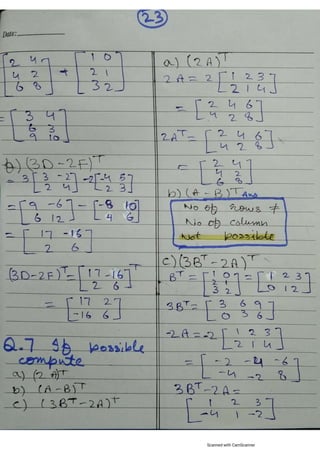 23
Date:
[2 4
4 2
6 8] + [1 0
2 1
3 2]
= [3 4
6 3
9 10]
b) (3D-2F)ᵀ
= 3 [3 -2
2 4] -2 [-4 5
2 3]
= [9 -6
6 12] - [-8 10
4 6]
= [17 -16
2 6]
(3D-2F)ᵀ = [17 -16
2 6]ᵀ
= [17 2
-16 6]
Q.7 If possible
compute
a) (2 A)ᵀ
b) (A-B)ᵀ
c) (3Bᵀ-2A)ᵀ
a) (2A)ᵀ
2A = 2 [1 2 3
2 1 4]
= [2 4 6
4 2 8]
2Aᵀ = [2 4 6
4 2 8]
= [2 4
4 2
6 8]
b) (A-B)ᵀ Ans
No of rows ≠
No of column
Not possible
c) (3Bᵀ-2A)ᵀ
Bᵀ = [1 0
2 1
3 2]ᵀ = [1 2 3
0 1 2]
3Bᵀ = [3 6 9
0 3 6]
-2A = -2 [1 2 3
2 1 4]
= [-2 -4 -6
-4 -2 8]
3Bᵀ-2A =
[1 2 3
-4 1 -2]
Scanned with CamScanner